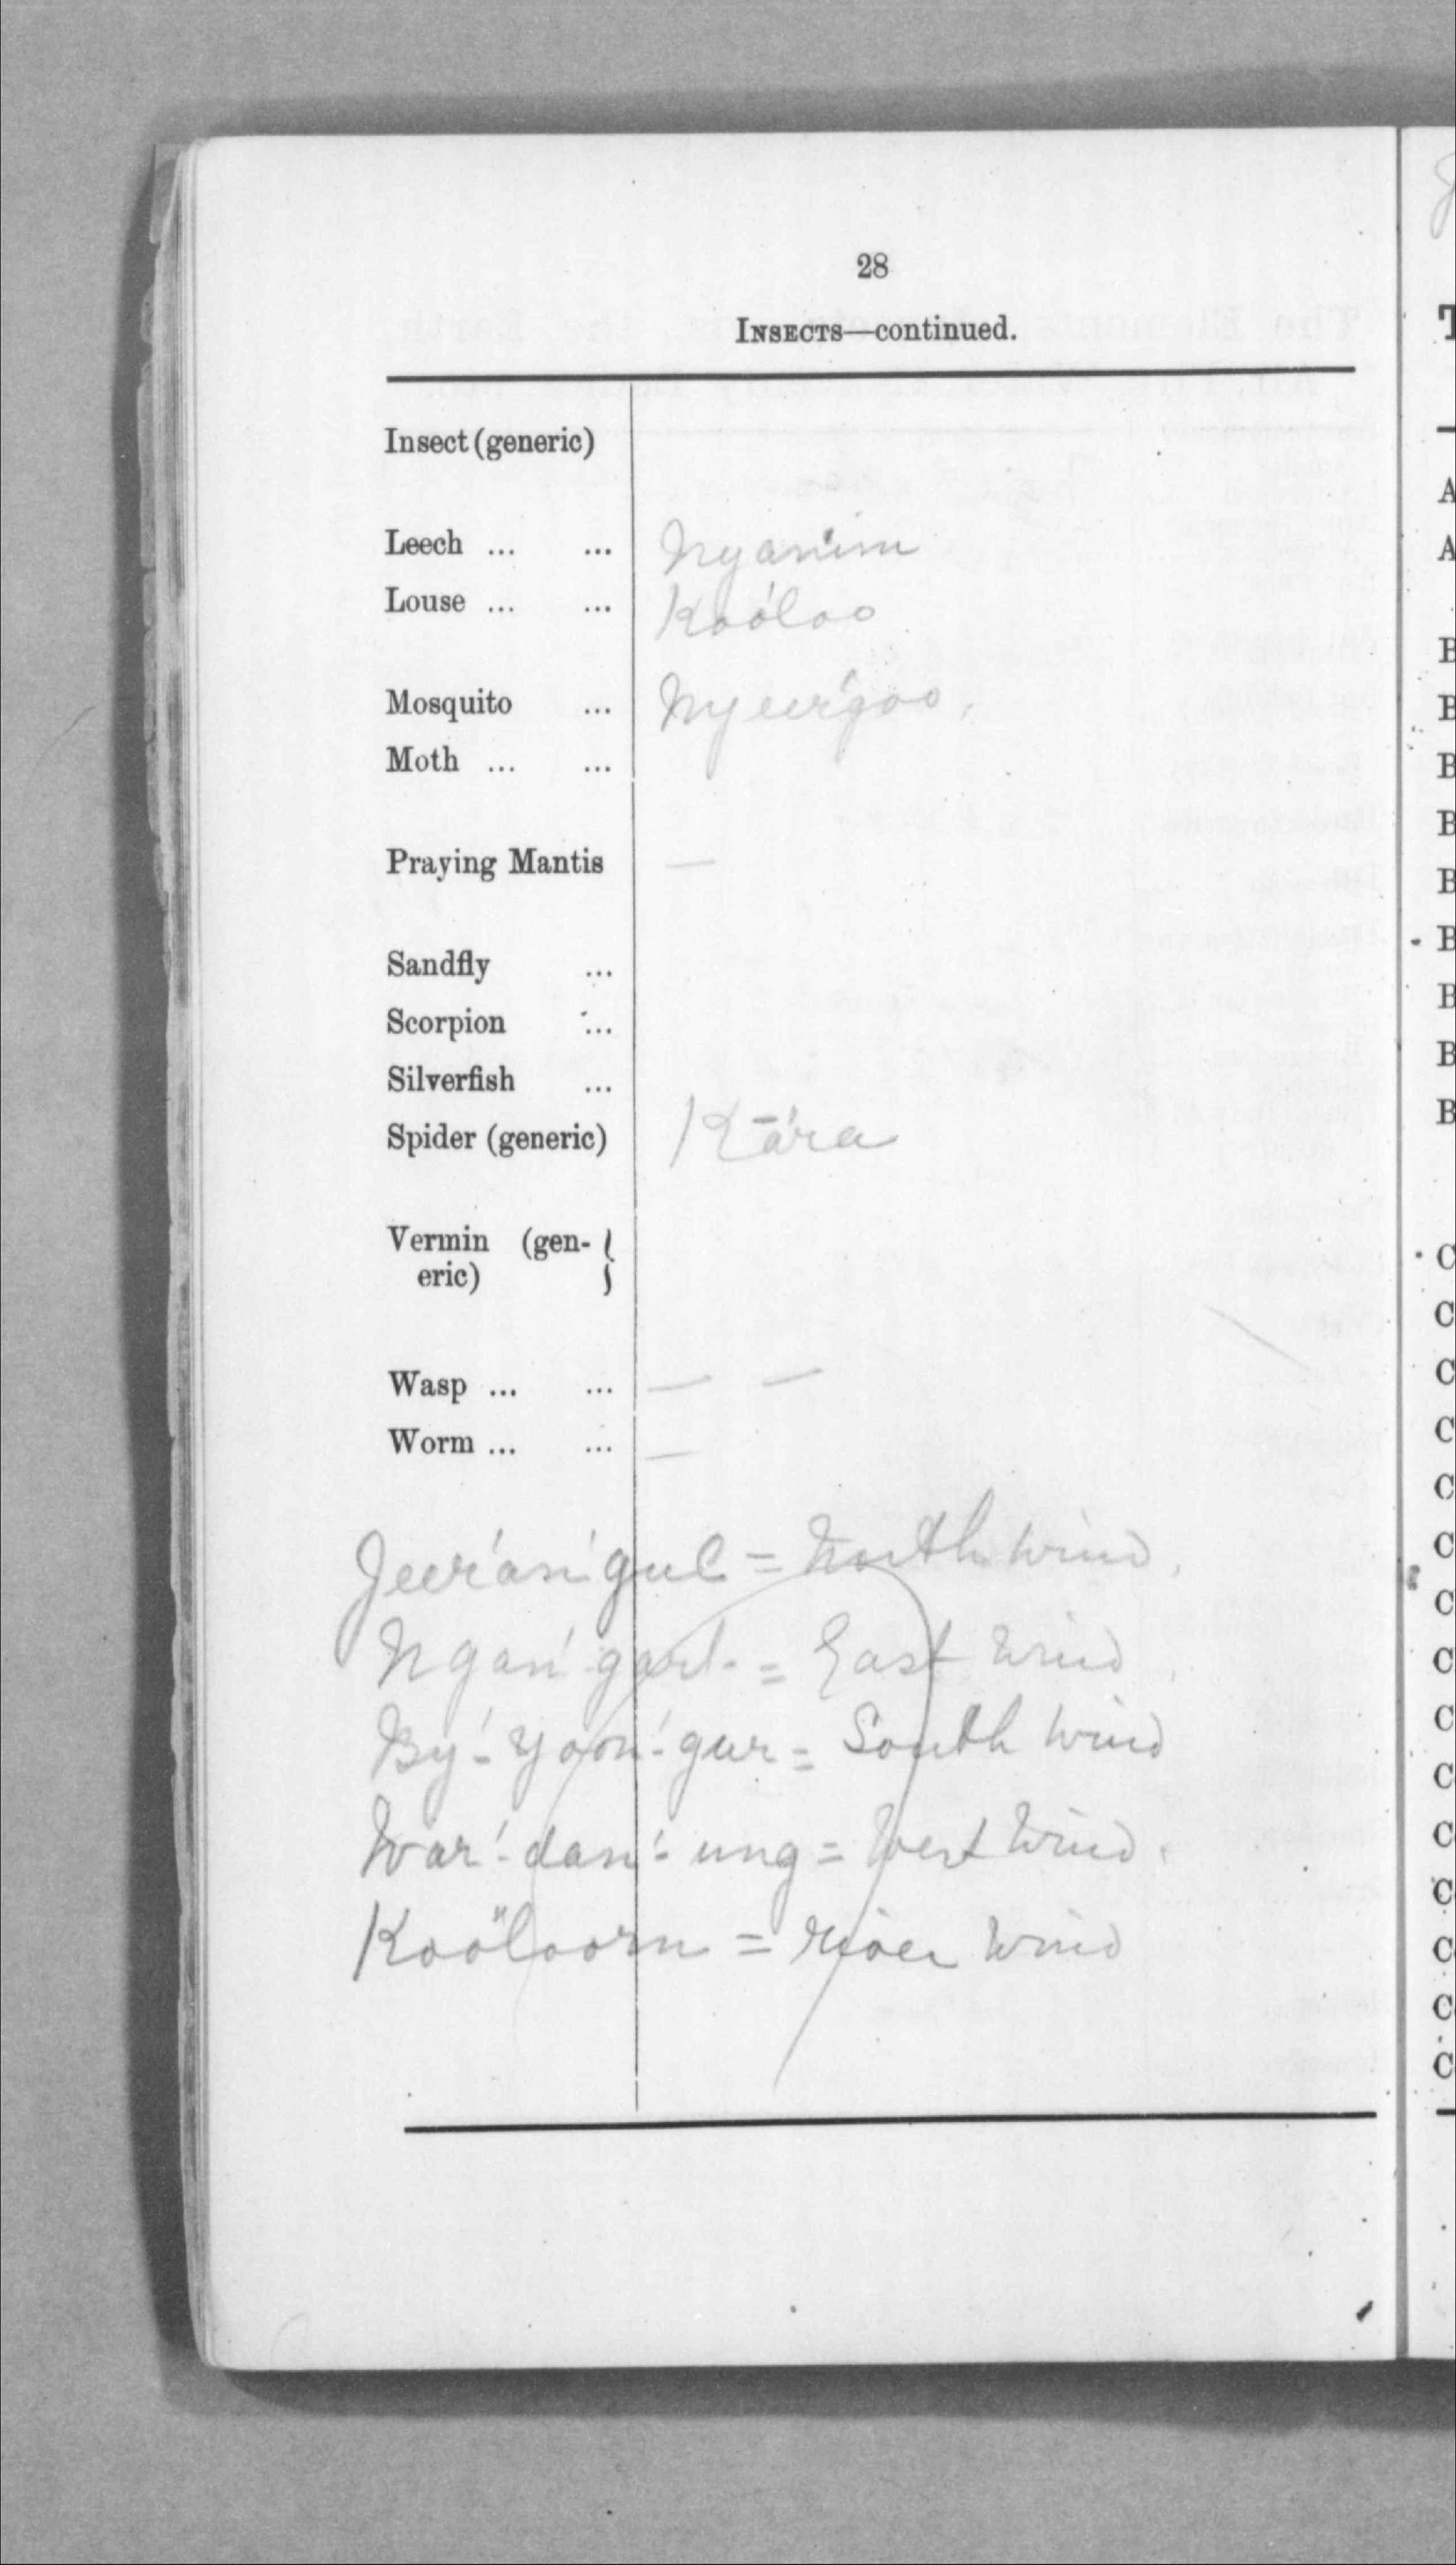 28
INSECTS—continued.
Insect (generic)
Leech ... ... Nyanim
Louse ... ... Koóloo
Mosquito ... Nyeergoo,
Moth ... ...
Praying Mantis —
Sandfly ...
Scorpion ...
Silverfish ...
Spider (generic) Kā́ra
Vermin (gen-
eric)
Wasp ... ... — —
Worm ... ... —
Jeer'an'gul = North wind.
Ngan'-gart = East wind
By'-yoon'-gur = South wind
War'-dan'-ung = West Wind.
Kooloorn = river wind